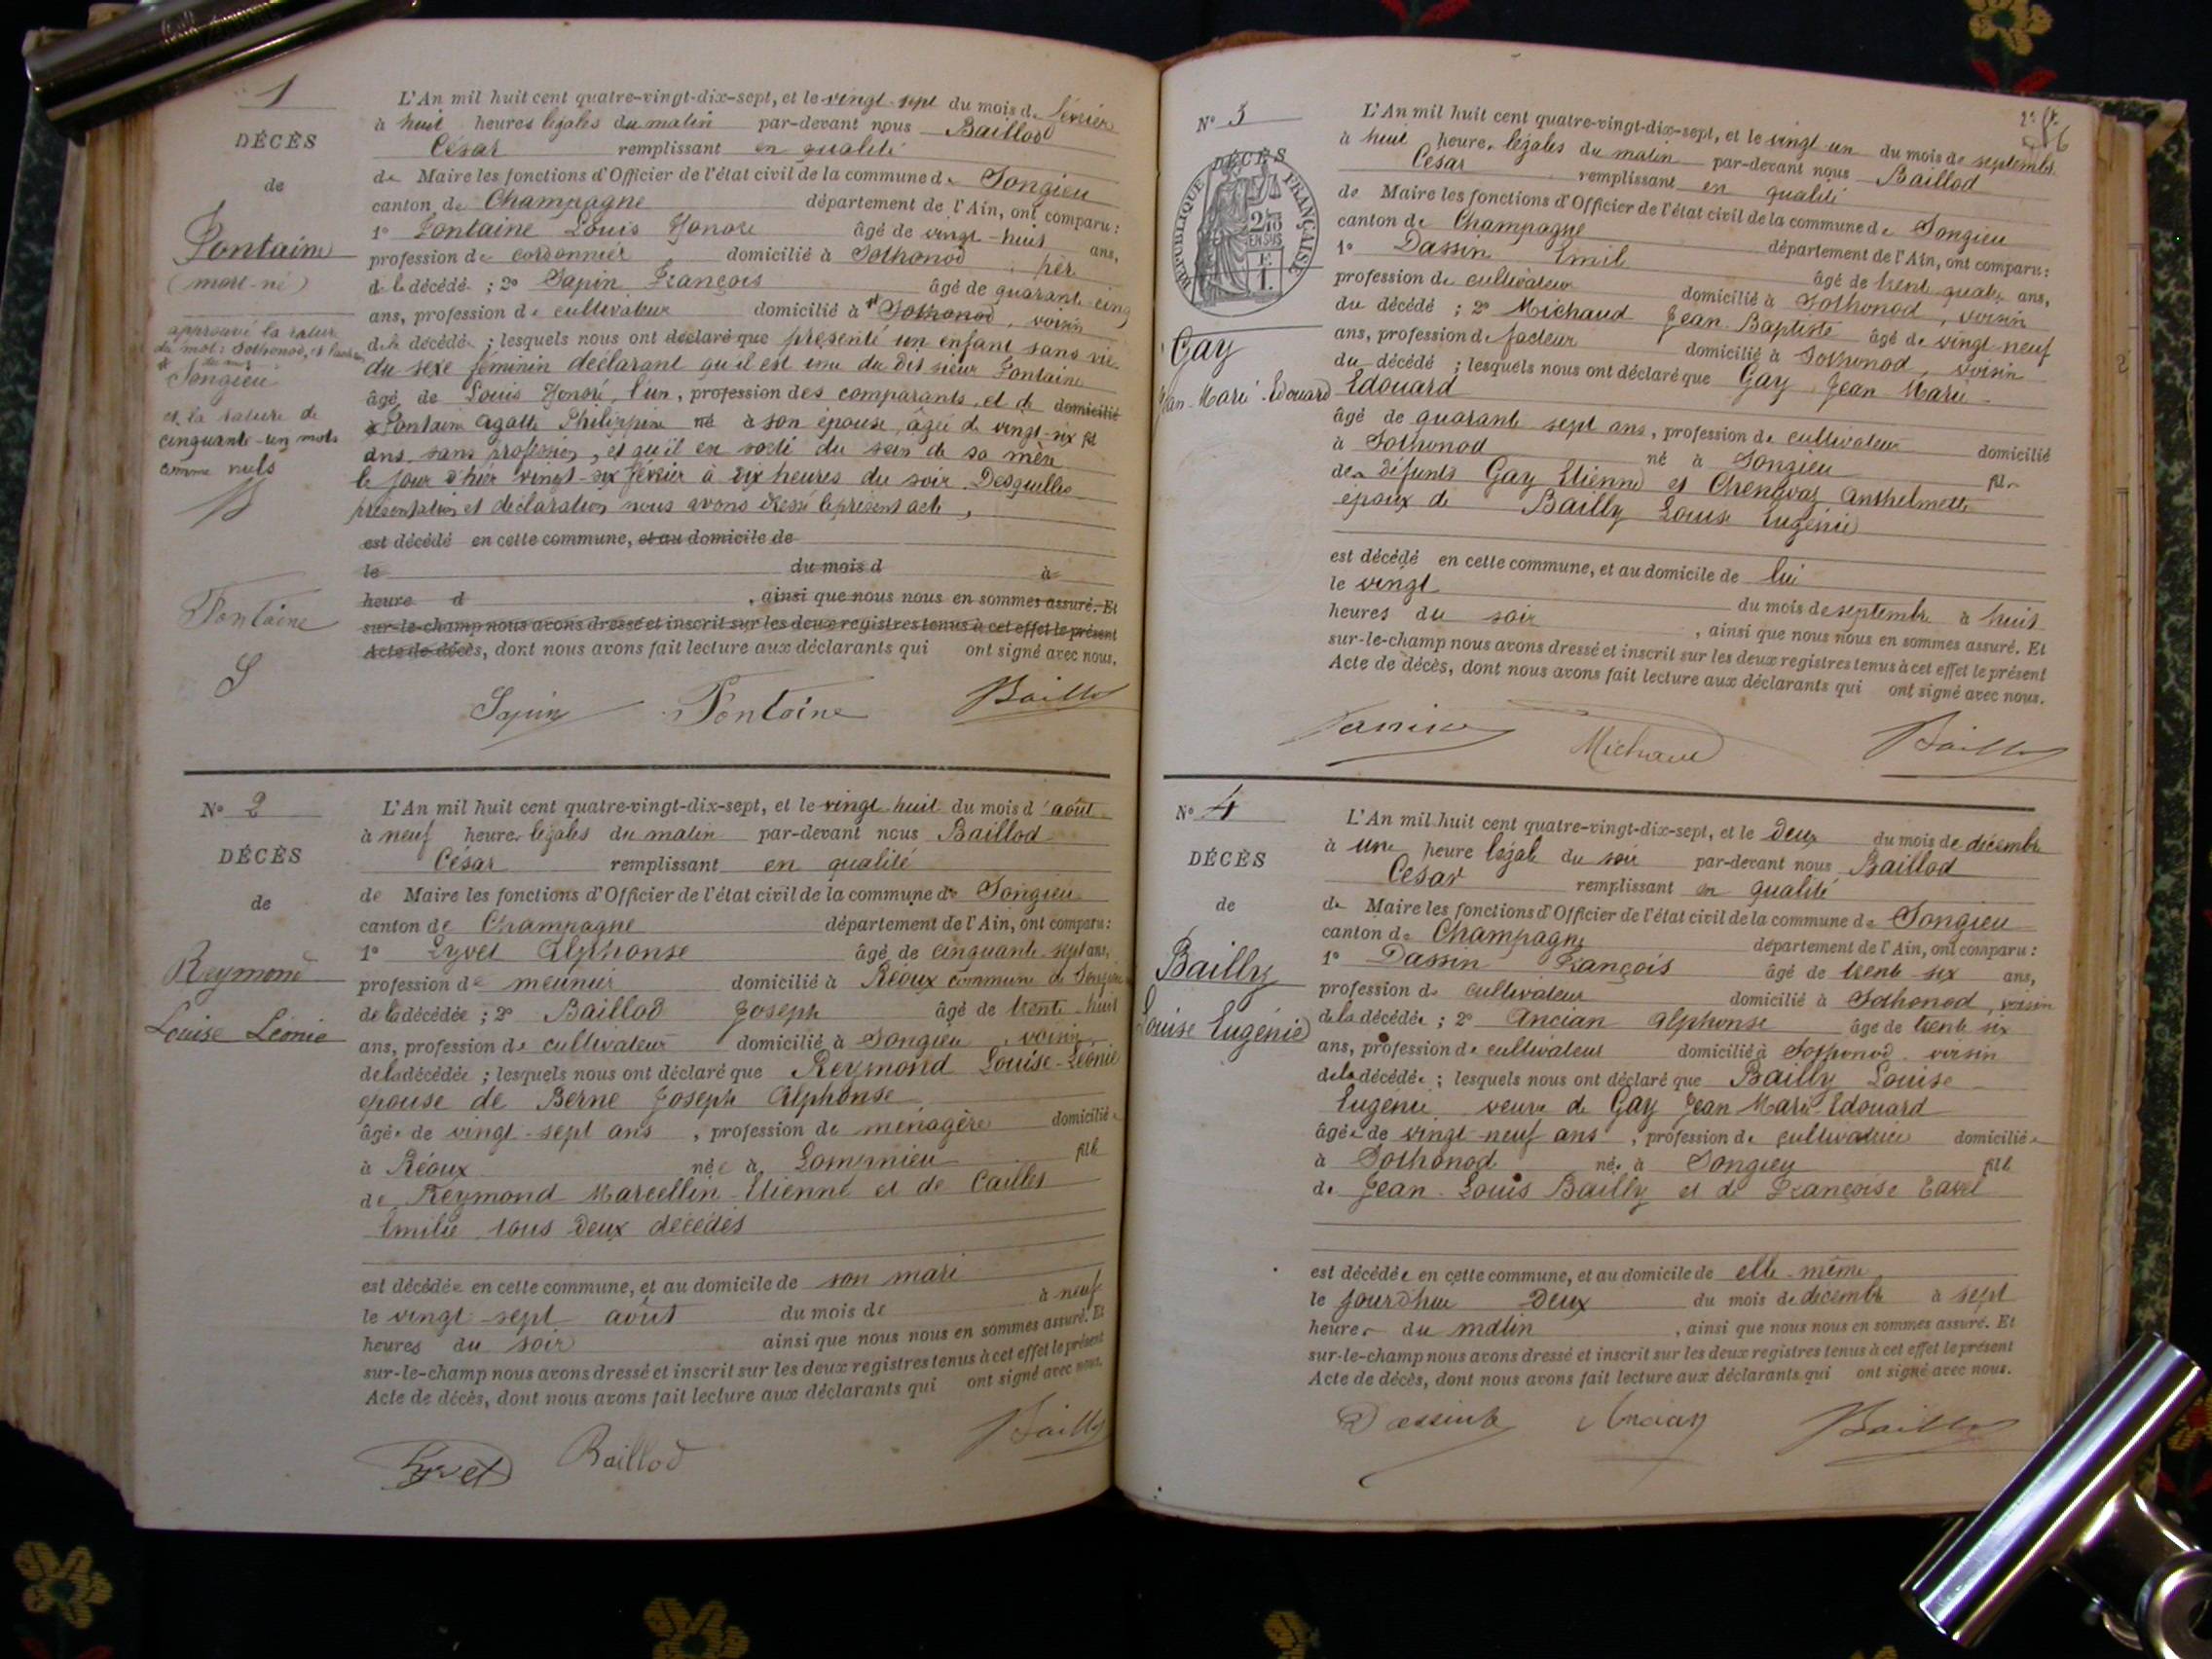 1
DÉCÈS
de
Fontaine
(mort-né)
approuvé la rature
du mot : Sothonod, et
Songieu
et la rature de
cinquante-un mots
comme nuls
B
Fontaine
S
L'An mil huit cent quatre-vingt-dix-sept, et le vingt-sept du mois de février
à huit heures légales du matin par-devant nous Baillod
César remplissant en qualité
de Maire les fonctions d'Officier de l'état civil de la commune de Songieu
canton de Champagne département de l'Ain, ont comparu :
1° Fontaine Louis Honoré âgé de vingt-huit ans,
profession de cordonnier domicilié à Sothonod, pèr
de la décédé ; 2° Sapin François âgé de quarante cinq
ans, profession de cultivateur domicilié à Sothonod, voisin
de la décédé ; lesquels nous ont déclaré que présenté un enfant sans vie
du sexe féminin déclarant qu'il est du dit sieur Fontaine
âgé de Louis Honoré, l'un, profession des comparants et de domicilié
à Fontaine Agatte Philippine né à son épouse, âgée de vingt-six fil
ans, sans profession, et qu'il est sorti du sein de sa mèr
le jour d'hier vingt-six février à dix heures du soir. Desquelles
présentation et déclaration nous avons dressé le présent acte,
est décédé en cette commune, et au domicile de
le du mois d à
heure d , ainsi que nous nous en sommes assuré. Et
sur-le-champ nous avons dressé et inscrit sur les deux registres tenus à cet effet le présent
Acte de décès, dont nous avons fait lecture aux déclarants qui ont signé avec nous.
Sapin Fontaine Baillod
N° 2
DÉCÈS
de
Reymond
Louise Léonie
L'An mil huit cent quatre-vingt-dix-sept, et le vingt huit du mois d'août
à neuf heures légales du matin par-devant nous Baillod
César remplissant en qualité
de Maire les fonctions d'Officier de l'état civil de la commune de Songieu
canton de Champagne département de l'Ain, ont comparu :
1° Lyvet Alphonse âgé de cinquante-sept ans,
profession de meunier domicilié à Réoux commune de Songieu
de la décédée ; 2° Baillod Joseph âgé de trente-huit
ans, profession de cultivateur domicilié à Songieu, voisin
de la décédée ; lesquels nous ont déclaré que Reymond Louise-Léonie
épouse de Berne Joseph Alphonse
âgée de vingt-sept ans, profession de ménagère domiciliée
à Réoux née à Lompnieu fille
de Reymond Marcellin-Etienne et de Cailles
Emilie, tous deux décédés
est décédée en cette commune, et au domicile de son mari
le vingt-sept août du mois de à neuf
heures du soir ainsi que nous nous en sommes assuré. Et
sur-le-champ nous avons dressé et inscrit sur les deux registres tenus à cet effet le présent
Acte de décès, dont nous avons fait lecture aux déclarants qui ont signé avec nous.
Lyvet Baillod Baillod
N° 3
RÉPUBLIQUE FRANÇAISE
DÉCÈS
2/10
EN SUS
F.
1.
Gay
Jean-Marie-Edouard
L'An mil huit cent quatre-vingt-dix-sept, et le vingt-un du mois de septembr
à huit heures légales du matin par-devant nous Baillod
César remplissant en qualité
de Maire les fonctions d'Officier de l'état civil de la commune de Songieu
canton de Champagne département de l'Ain, ont comparu :
1° Dassin Emil âgé de trente quatre ans,
profession de cultivateur domicilié à Sothonod, voisin
du décédé ; 2° Michaud Jean-Baptiste âgé de vingt neuf
ans, profession de facteur domicilié à Sothonod, voisin
du décédé ; lesquels nous ont déclaré que Gay Jean-Marie
Edouard
âgé de quarante sept ans, profession de cultivateur domicilié
à Sothonod né à Songieu fils
des défunts Gay Etienne et Chenavaz Anthelmette
époux de Bailly Louise Eugénie
est décédé en cette commune, et au domicile de lui
le vingt du mois de septembr à huit
heures du soir, ainsi que nous nous en sommes assuré. Et
sur-le-champ nous avons dressé et inscrit sur les deux registres tenus à cet effet le présent
Acte de décès, dont nous avons fait lecture aux déclarants qui ont signé avec nous.
Michaud Baillod
N° 4
DÉCÈS
de
Bailly
Louise Eugénie
L'An mil huit cent quatre-vingt-dix-sept, et le deux du mois de décembr
à une heure légale du soir par-devant nous Baillod
César remplissant en qualité
de Maire les fonctions d'Officier de l'état civil de la commune de Songieu
canton de Champagne département de l'Ain, ont comparu :
1° Dassin François âgé de trente-six ans,
profession de cultivateur domicilié à Sothonod, voisin
de la décédée ; 2° Ancian Alphonse âgé de trente six
ans, profession de cultivateur domicilié à Sothonod voisin
de la décédée ; lesquels nous ont déclaré que Bailly Louise
Eugénie veuve de Gay Jean Marie Edouard
âgée de vingt-neuf ans, profession de cultivatrice domiciliée
à Sothonod née à Songieu fille
de Jean-Louis Bailly et de Françoise Tavel
est décédée en cette commune, et au domicile de elle-même
le jourd'hui deux du mois de décembr à sept
heures du matin, ainsi que nous nous en sommes assuré. Et
sur-le-champ nous avons dressé et inscrit sur les deux registres tenus à cet effet le présent
Acte de décès, dont nous avons fait lecture aux déclarants qui ont signé avec nous.
Ancian Baillod